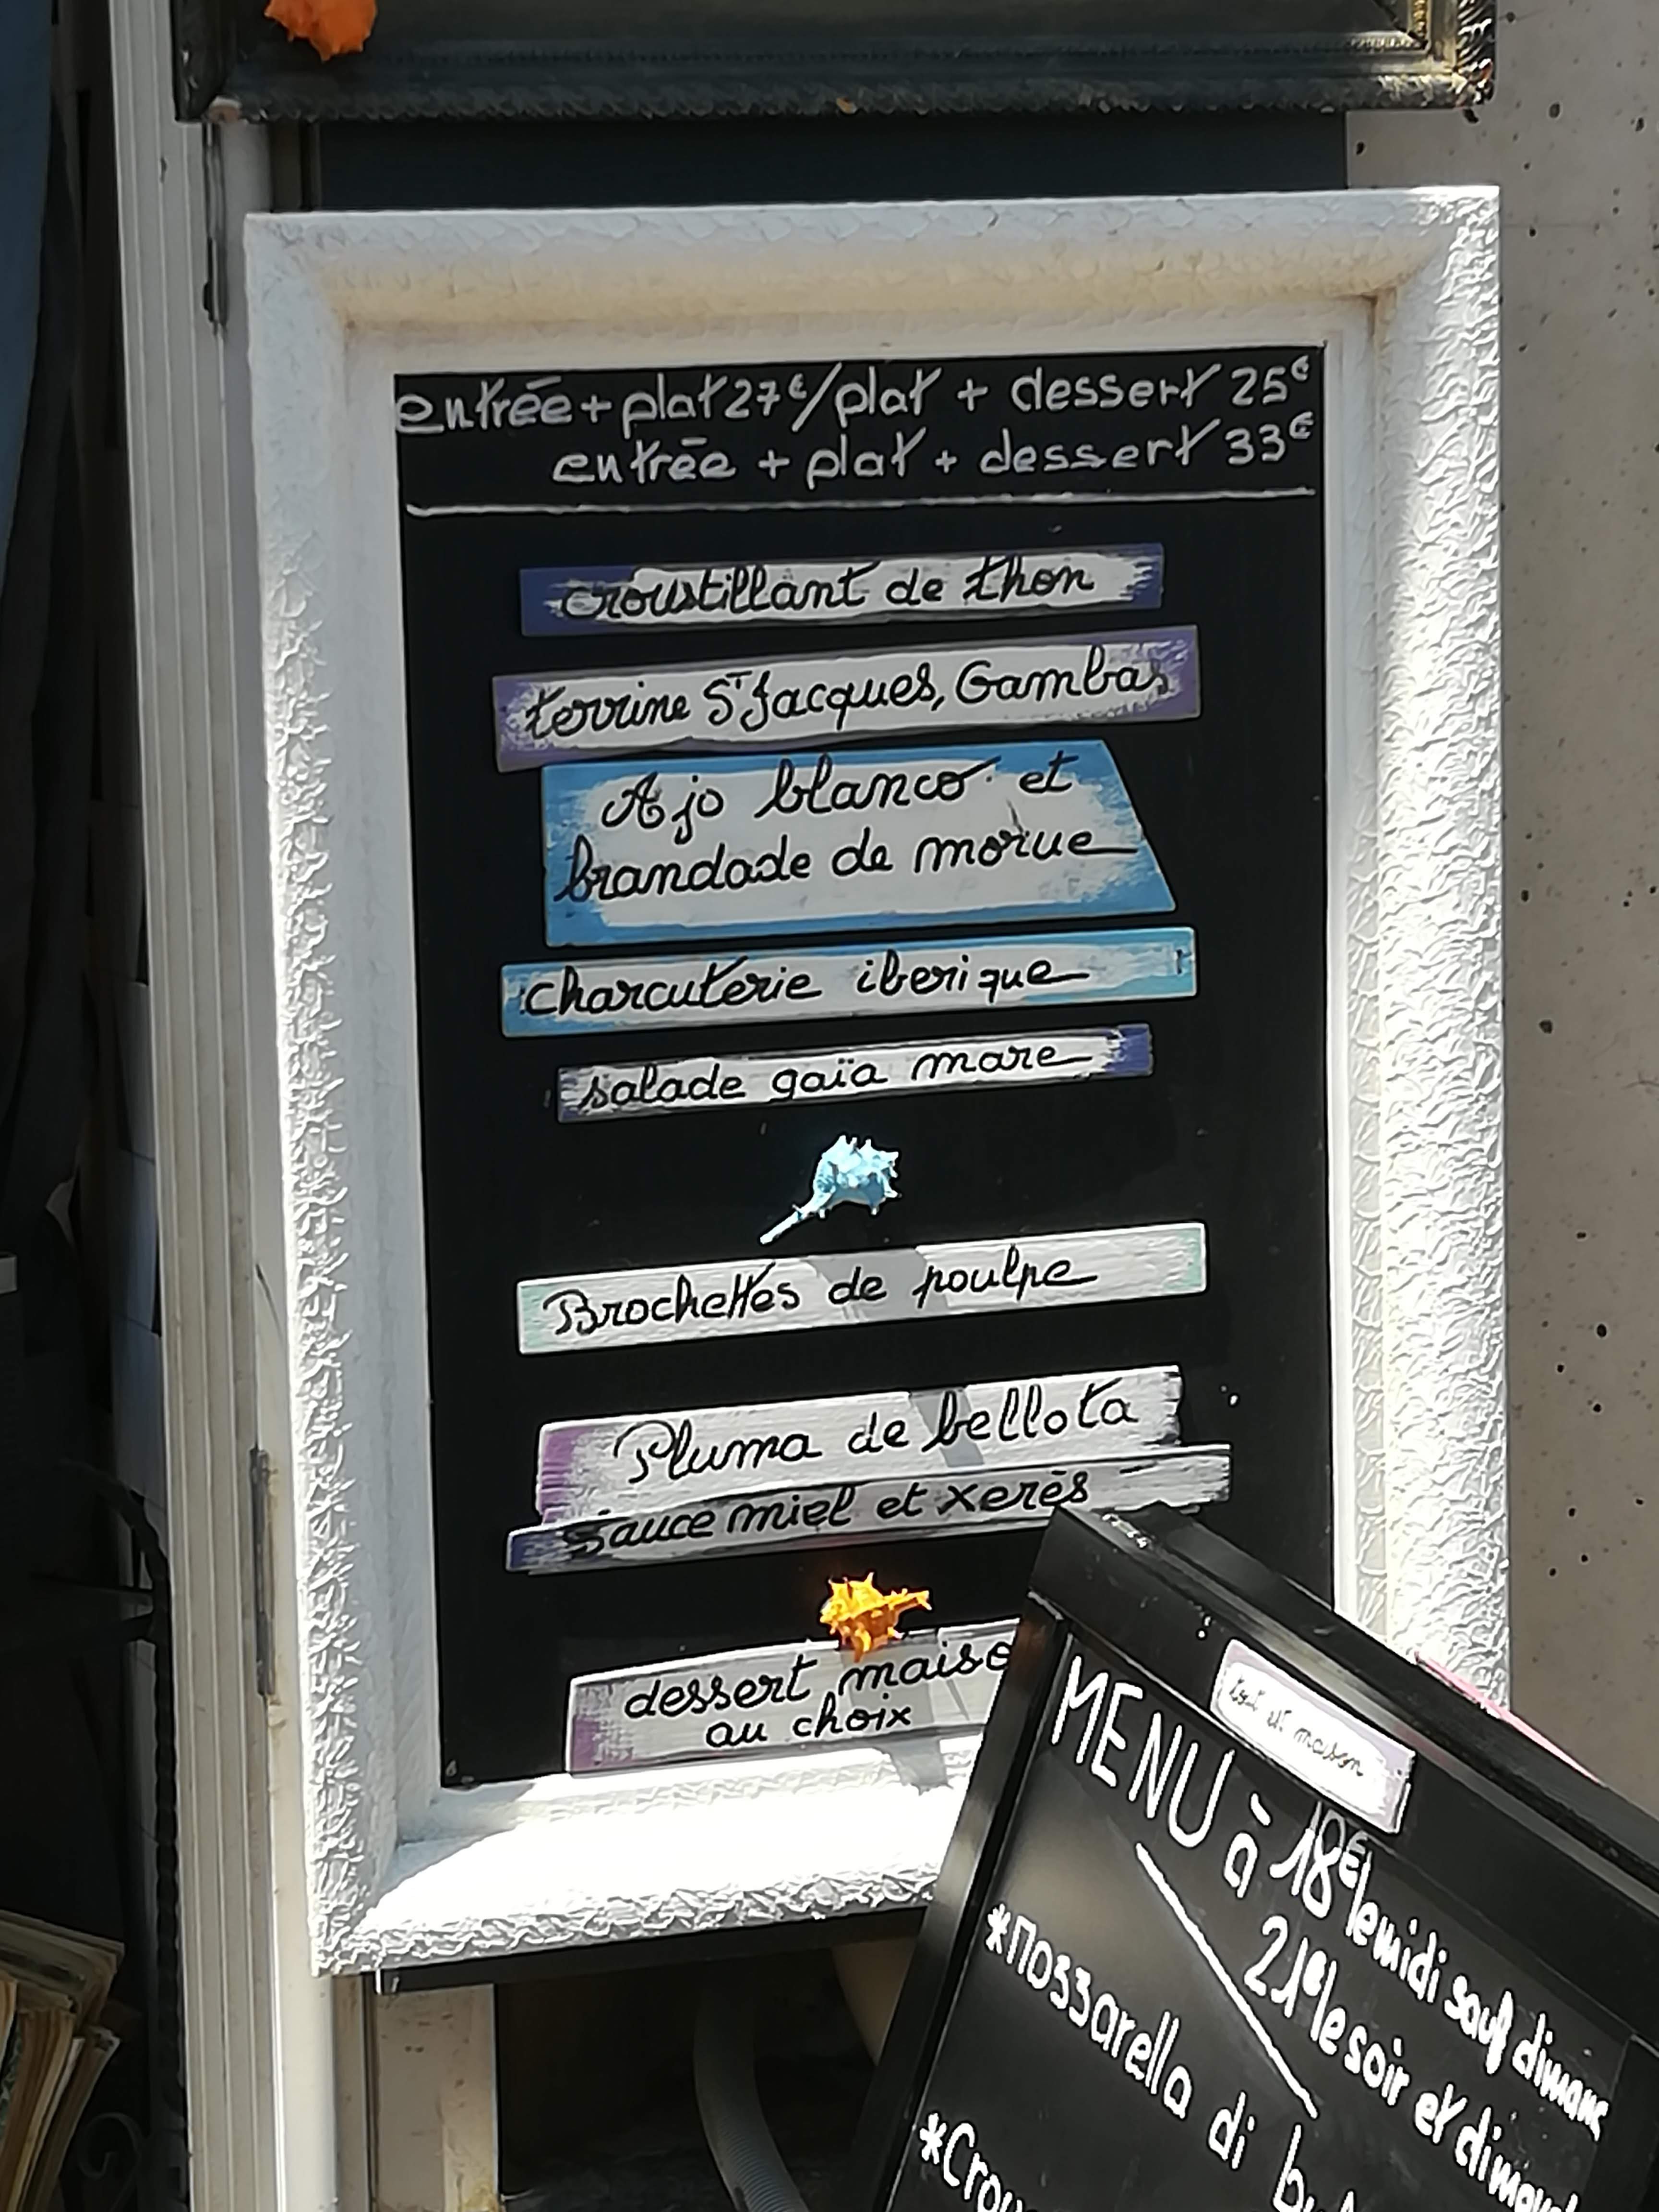 entrée + plat 27€/plat + dessert 25€
entrée + plat + dessert 33€
croustillant de thon
terrine ST Jacques, Gambas
Ajo blanco et
brandade de morue
charcuterie iberique
salade gaïa mare
Brochettes de poulpe
Pluma de bellota
sauce miel et xerès
dessert maiso
au choix
tout est maison
MENU à 18€ le midi sauf dimanc
21€ le soir et dimanc
*Mozzarella di bu
*Crou